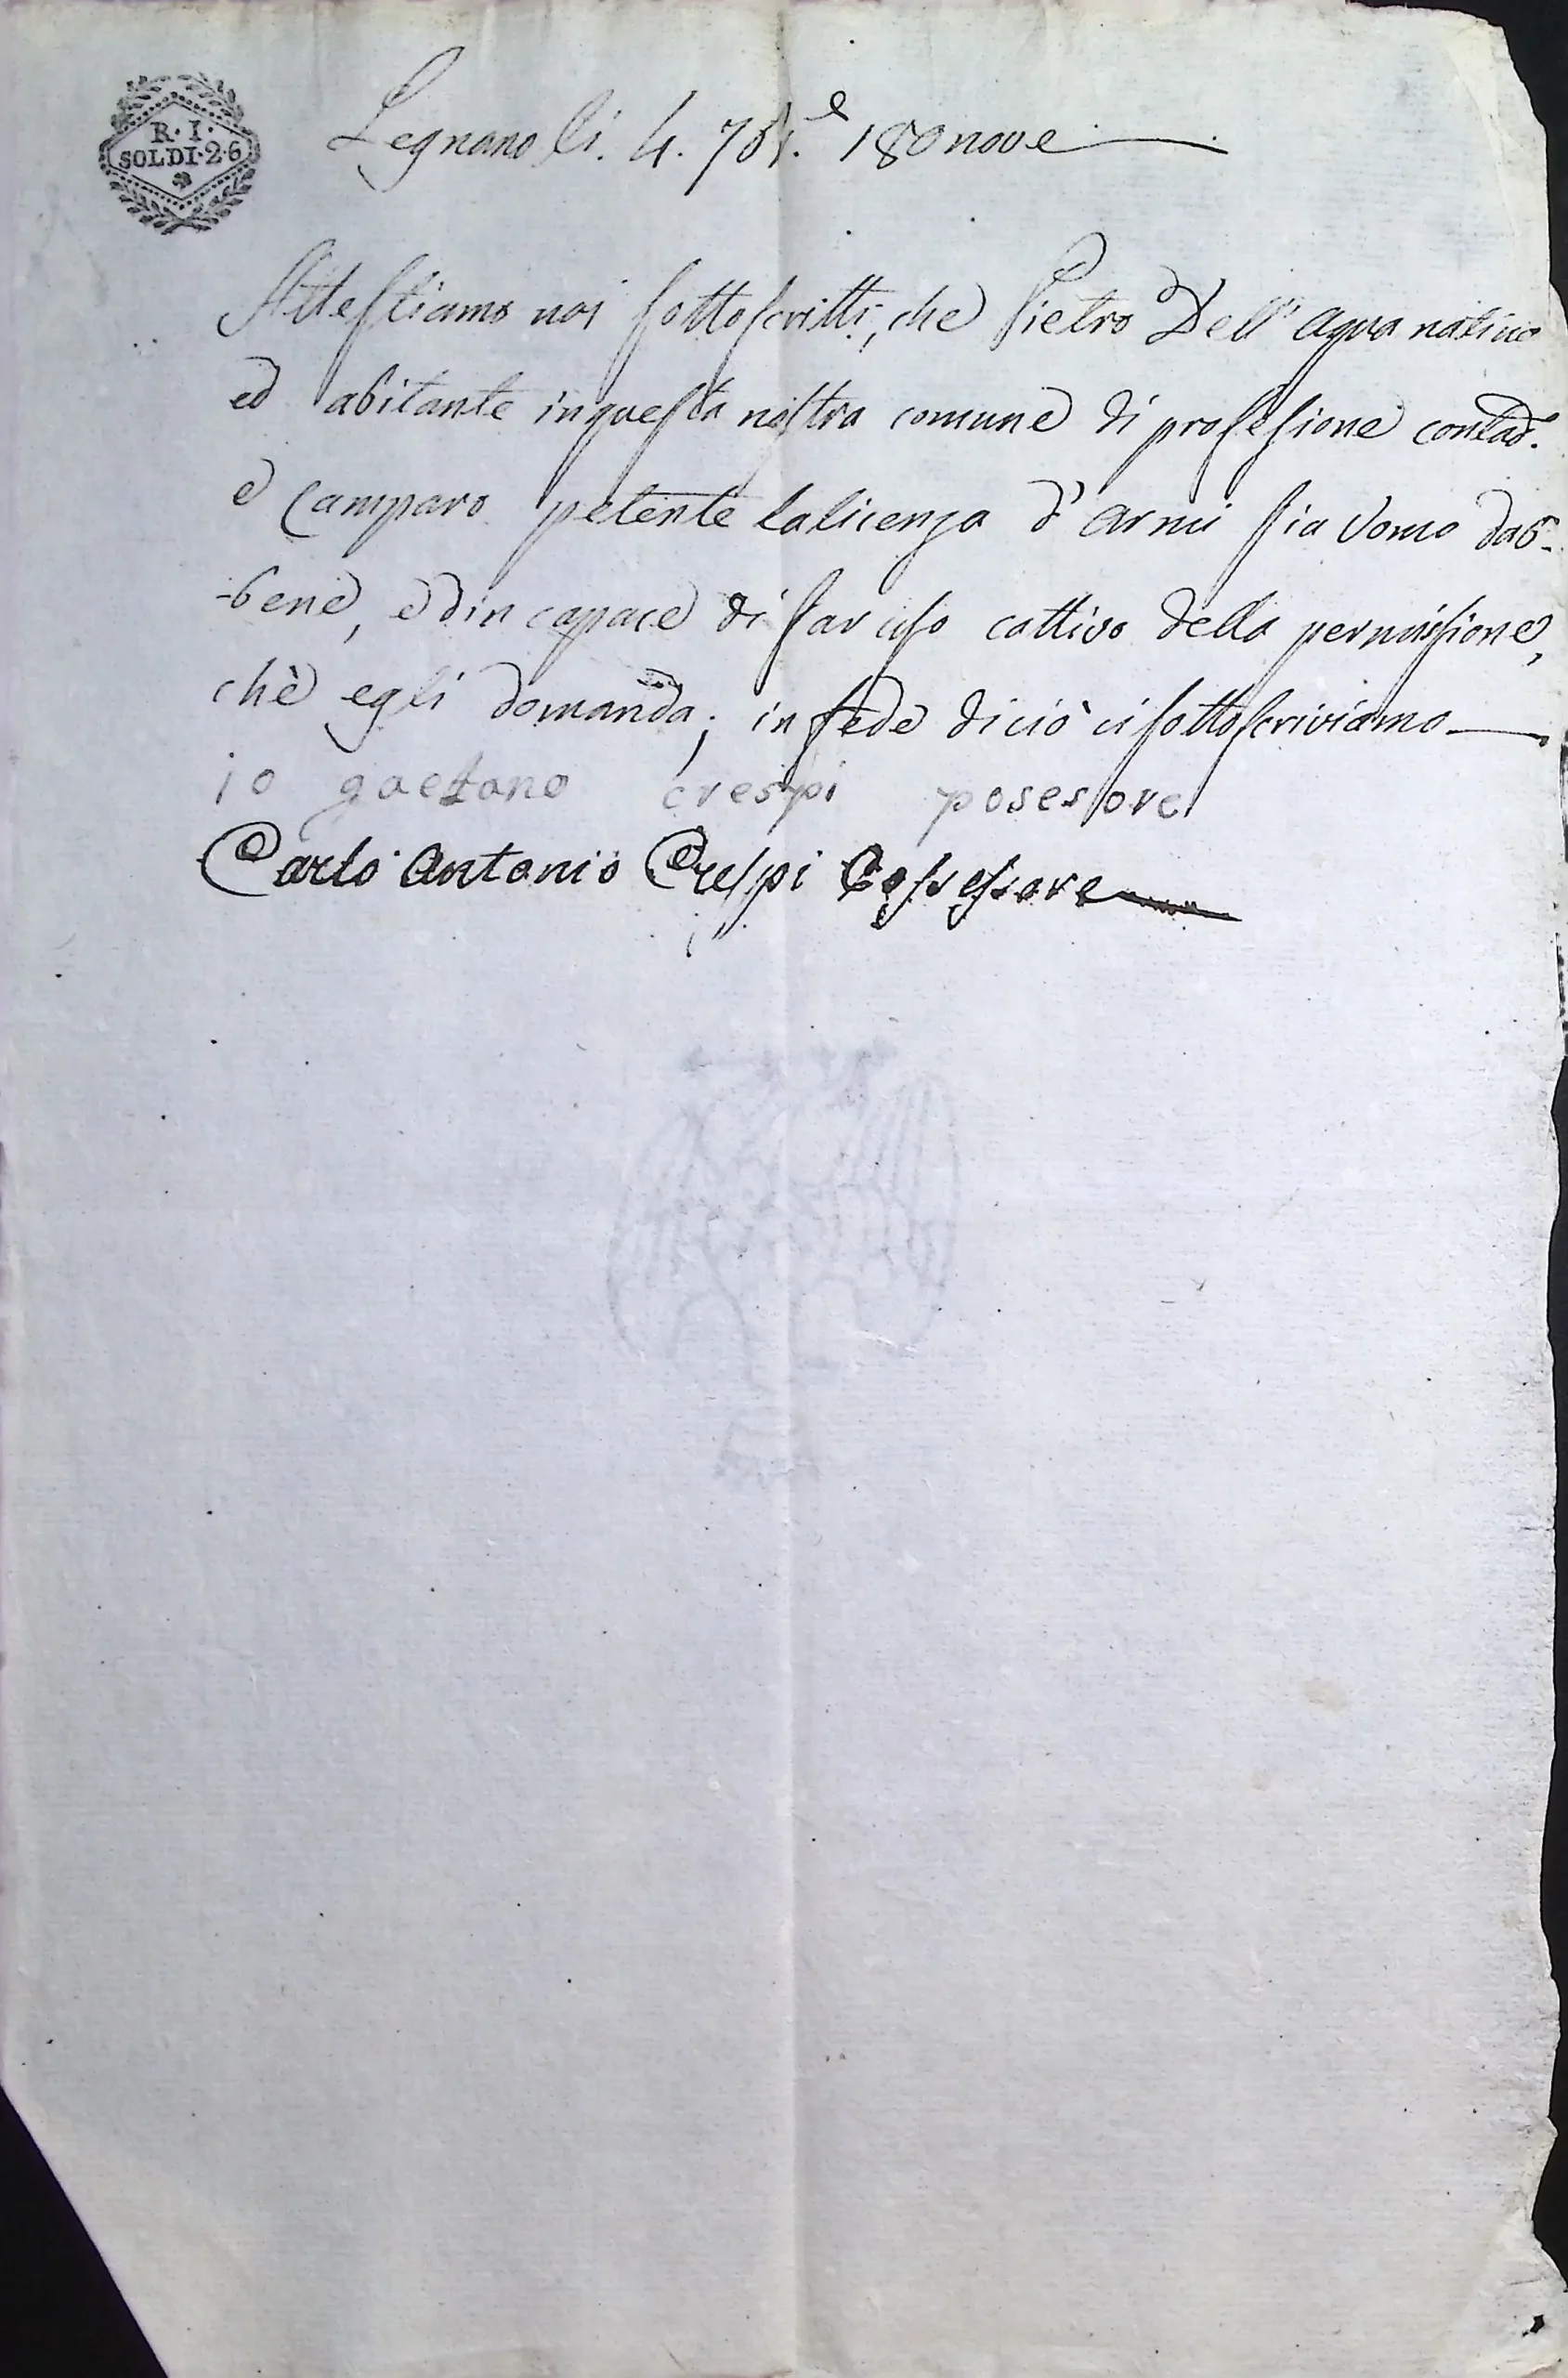 R. I.
SOLDI·2·6
Legnano li. 4. 7b.e 180nove
Attestiamo noi sottoscritti, che Pietro Dell' Aqua nativo
ed abitante in questa nostra comune di professione contad.o
e Camparo petente la licenza d' armi sia Uomo dab-
-bene, ed in capace di far uso cattivo della permissione,
chè egli domanda; in fede di ciò ci sottoscriviamo
io gaetano crespi posessore
Carlo Antonio Crespi Possessore